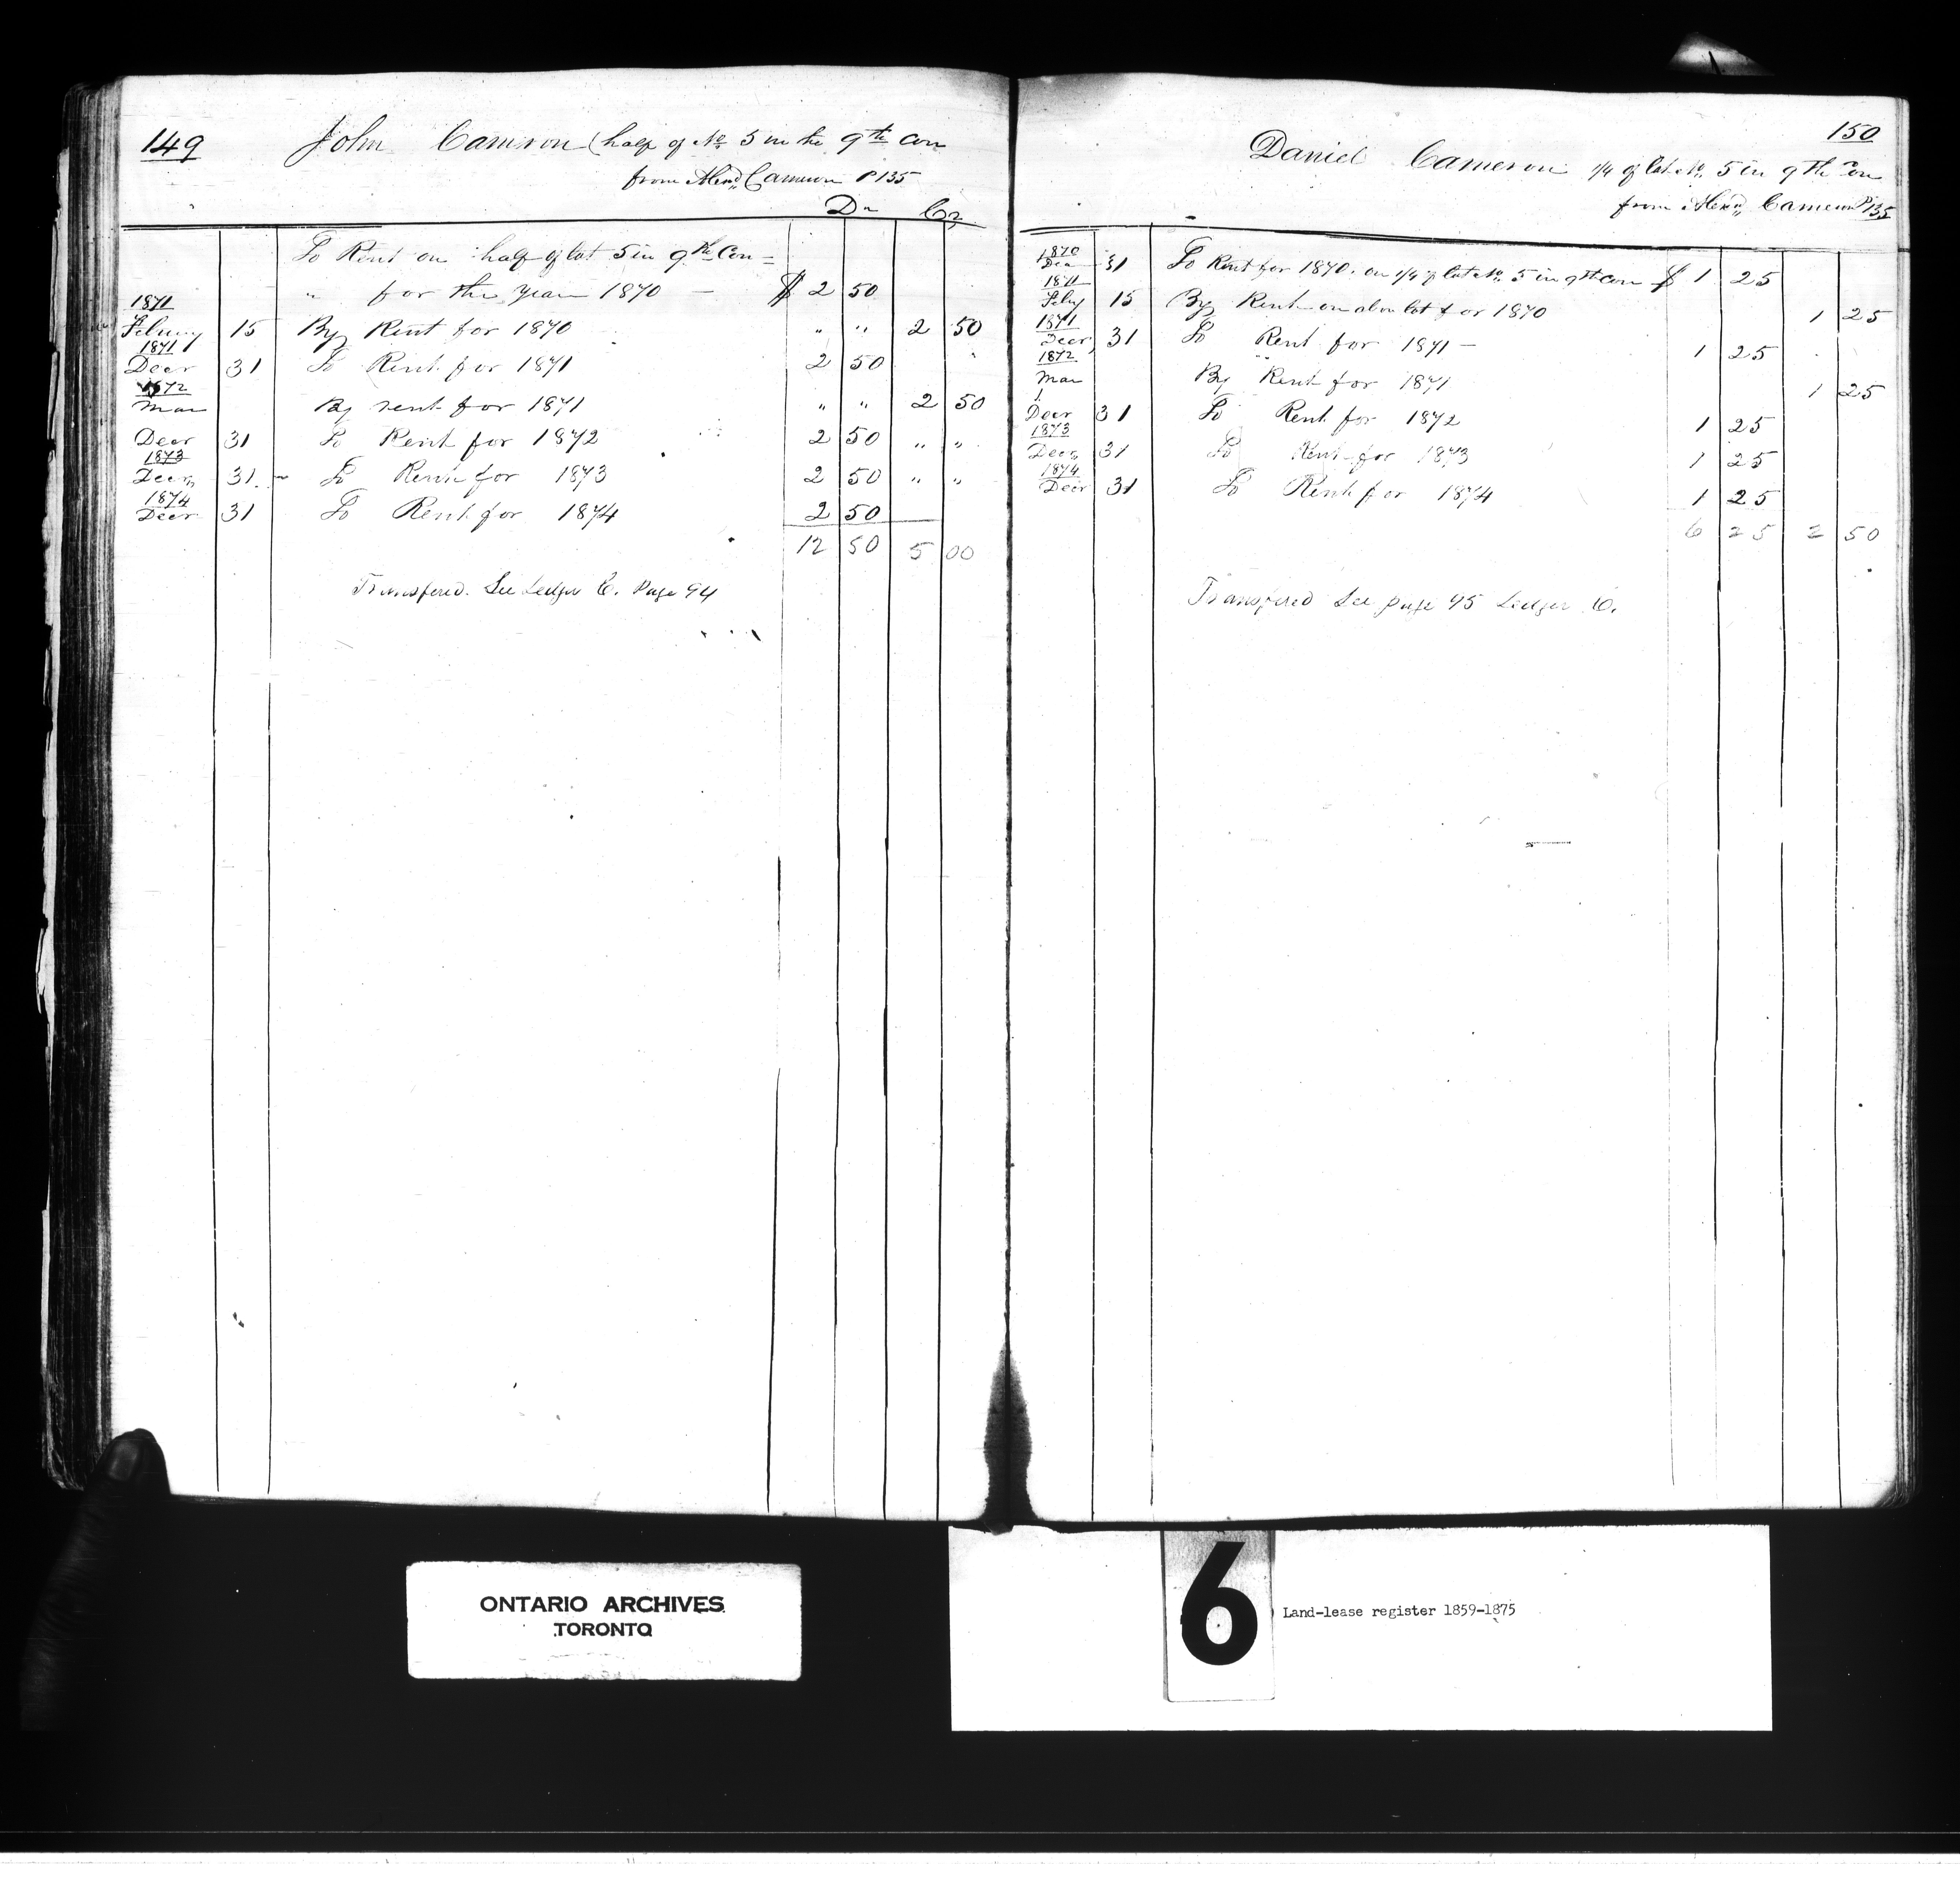 149
John Cameron (half of No 5 in the 9th Con
from Alexr Cameron P 135
Dr Cr
To Rent on half of lot 5 in 9th Con =
" for the Year 1870 — $ 2 50
1871
Febuary 15 By Rent for 1870 " " 2 50
1871
Decr 31 To Rent for 1871 2 50
1872
Mar By rent for 1871 " " 2 50
Decr 31 To Rent for 1872 2 50 " "
1873
Decr 31 To Rent for 1873 2 50 " "
1874
Decr 31 To Rent for 1874 2 50
12 50 5 00
Transfered. See Ledger C. Page 94
150
Daniel Cameron 1/4 of lot No 5 in 9th Con
from Alexr Cameron P 135
1870
Decr 31 To Rent for 1870. on 1/4 of lot No. 5 in 9th Con $ 1 25
1871
Feby 15 By Rent on abov lot for 1870 1 25
1871
Decr 31 To Rent for 1871 — 1 25
1872
Mar By Rent for 1871 1 25
Decr 31 To Rent for 1872 1 25
1873
Decr 31 To Rent for 1873 1 25
1874
Decr 31 To Rent for 1874 1 25
6 25 2 50
Transfered See page 95 Ledger C.
ONTARIO ARCHIVES
TORONTO
6
Land-lease register 1859-1875